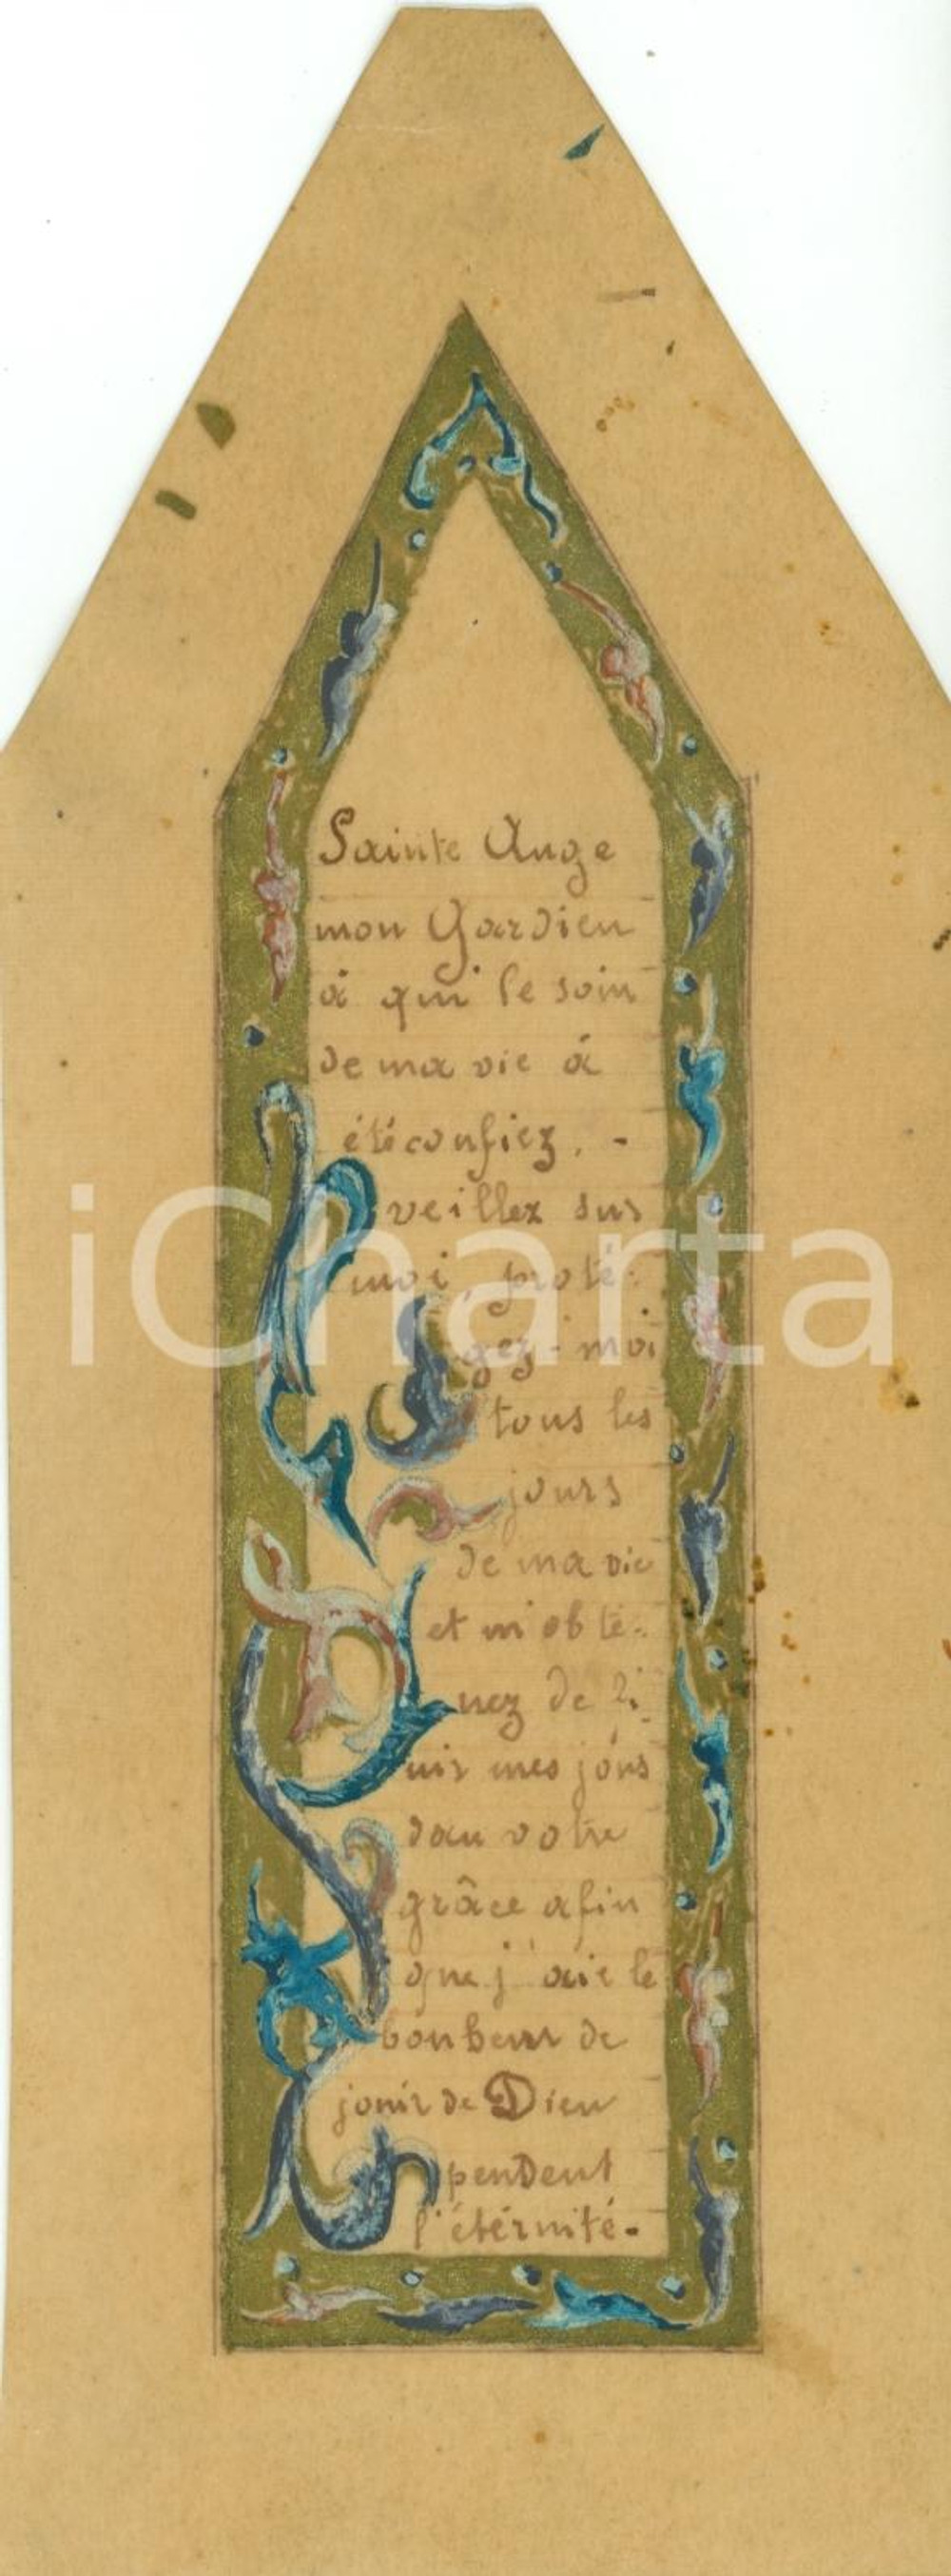 Sainte Ange
mon Gardien
à qui le soin
de ma vie á
été confiez. -
veillez sur
moi, proté-
gez-moi
tous les
jours
de ma vie
et m'obte-
nez de fi-
nir mes jours
dan votre
grâce afin
que j'aie le
bonheur de
jouir de Dieu
pendent
l'étérnité.
iCharta